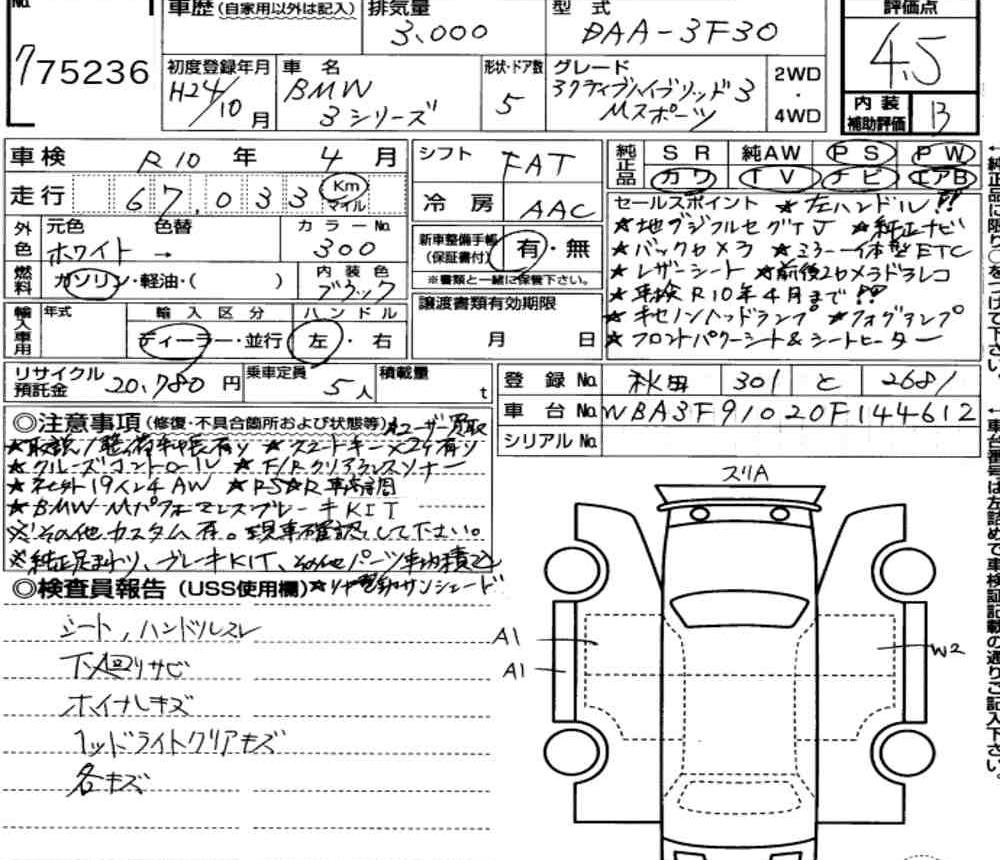 No.
775236
車歴（自家用以外は記入）
排気量 3,000
型式 DAA-3F30
評価点 4.5
初度登録年月 H24/10月
車名 BMW 3シリーズ
形状・ドア数 5
グレード アクティブハイブリッド3 Mスポーツ
2WD・4WD
内装補助評価 B
車検 R10年 4月
走行 67,033 Km マイル
シフト FAT
冷房 AAC
純正品 SR 純AW PS PW
カワ TV ナビ エアB
外色 元色 ホワイト → 色替
カラーNo. 300
燃料 ガソリン・軽油・（ ）
内装色 ブラック
新車整備手帳（保証書付） 有・無
※書類と一緒に保管下さい。
輸入車用 年式
輸入区分 ディーラー・並行
ハンドル 左・右
譲渡書類有効期限
月 日
セールスポイント ★左ハンドル!!
★地デジフルセグTV ★純正ナビ
★バックカメラ ★ミラー一体型ETC
★レザーシート ★前後2カメラドラレコ
★車検R10年4月まで!!
★キセノンヘッドランプ ★フォグランプ
★フロントパワーシート&シートヒーター
リサイクル預託金 20,780円
乗車定員 5人
積載量 t
登録No. 秋田 301 と 2681
車台No. WBA3F91020F144612
シリアルNo.
◎注意事項（修復・不具合箇所および状態等）★ユーザー買取
★取説/整備手帳有り ★スマートキー×2ケ有り
★クルーズコントロール ★F/Rクリアランスソナー
★社外19インチAW ★RS★R車高調
★BMW Mパフォーマンスブレーキ KIT
※その他カスタム有。現車確認して下さい。
※純正足まわり、ブレーキKIT、その他パーツ車内積込
◎検査員報告（USS使用欄）★リヤ電動サンシェード
シート,ハンドルスレ
下廻りサビ
ホイールキズ
ヘッドライトクリアキズ
各キズ
スリA
A1
A1
W2
←純正品に限り○をつけて下さい。
←車台番号は左詰めで車検証記載の通りご記入下さい。